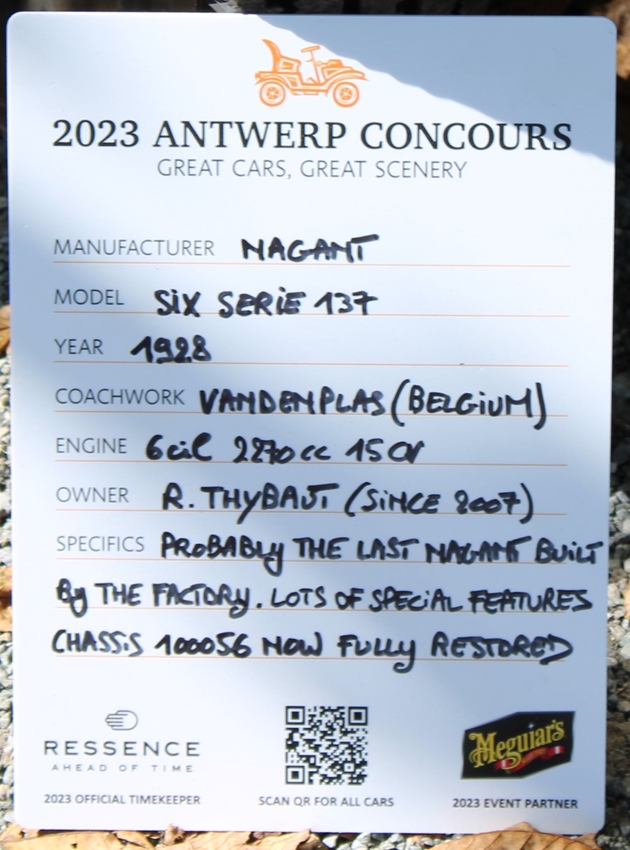 2023 ANTWERP CONCOURS
GREAT CARS, GREAT SCENERY
MANUFACTURER NAGANT
MODEL SiX SERiE 137
YEAR 1928
COACHWORK VANDENPLAS (BELGiUM)
ENGINE 6cil 2270cc 15CV
OWNER R. THYBAUT (SiNCE 2007)
SPECIFICS PRoBABLy THE LAST NAGANT BUiLT
By THE FACTORy. LOTS OF SPECiAL FEATURES
CHASSiS 100056 NOW FULLy RESTORED
RESSENCE
AHEAD OF TIME
Meguiar's
2023 OFFICIAL TIMEKEEPER
SCAN QR FOR ALL CARS
2023 EVENT PARTNER